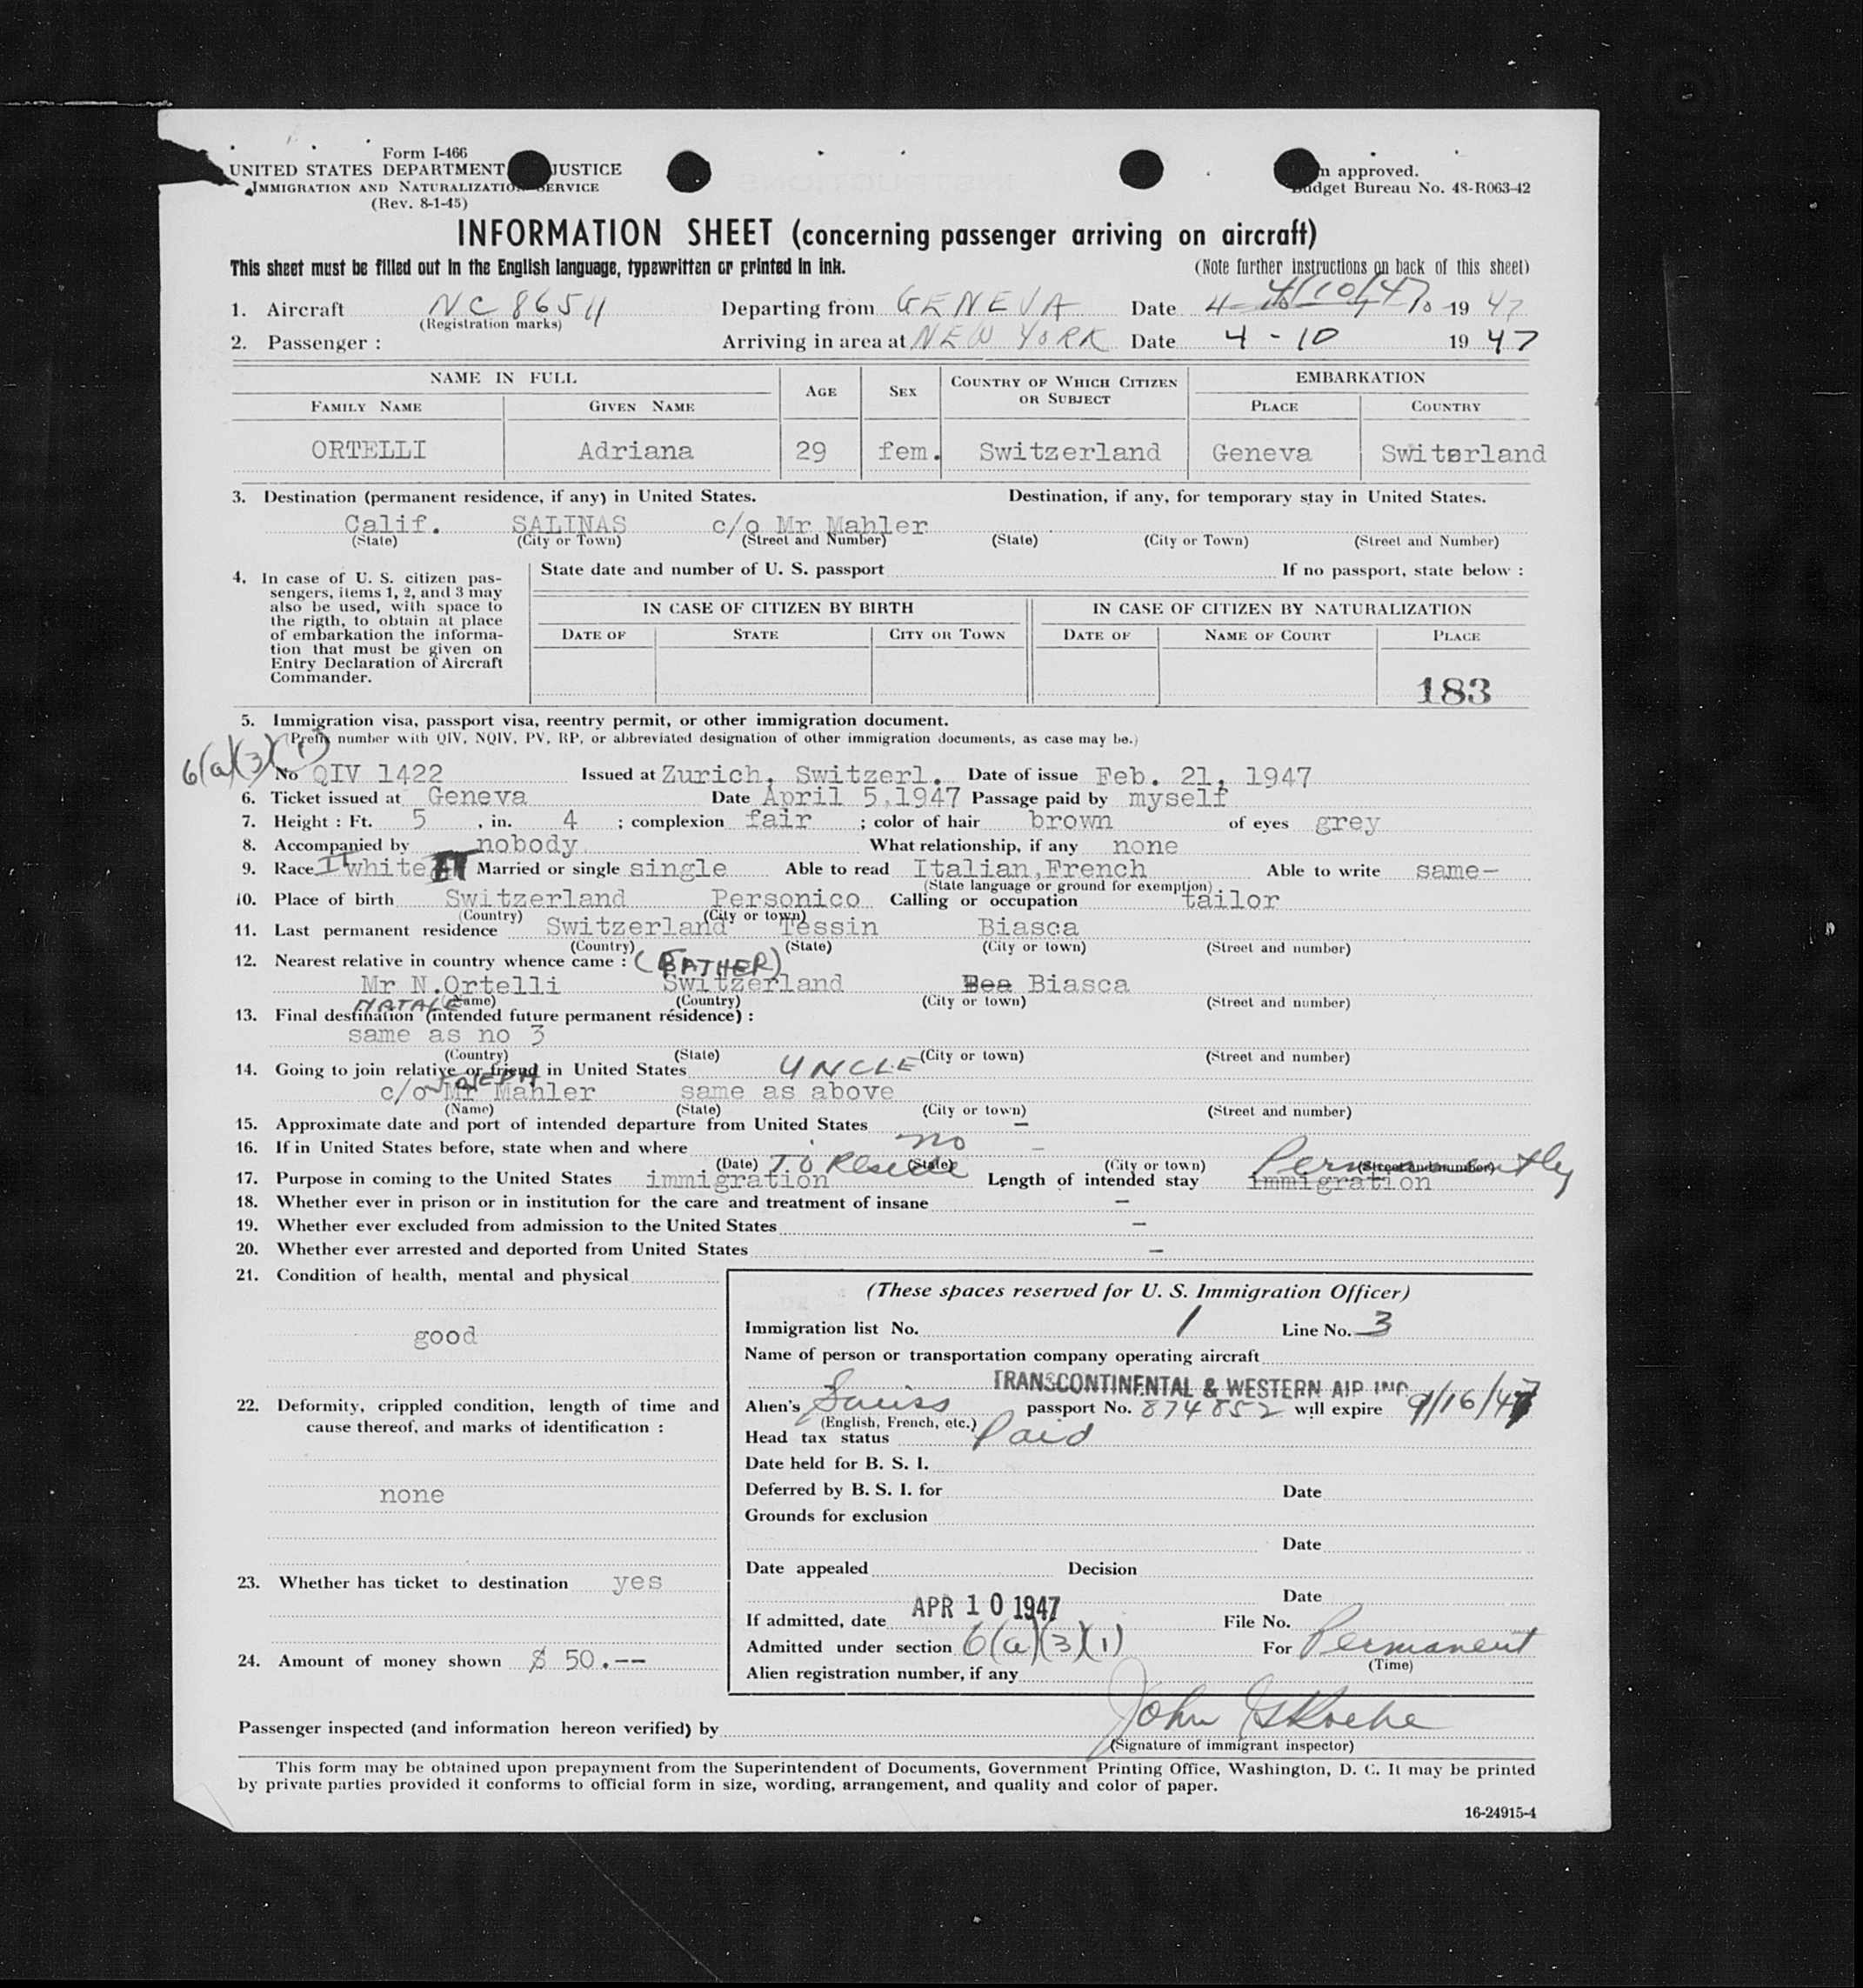 Form I-466
UNITED STATES DEPARTMENT JUSTICE
IMMIGRATION AND NATURALIZATION SERVICE
(Rev. 8-1-45)
approved.
Budget Bureau No. 43-R063-42
INFORMATION SHEET (concerning passenger arriving on aircraft)
This sheet must be filled out in the English language, typewritten or printed in ink.
(Note further instructions on back of this sheet)
1. Aircraft NC 86511 Departing from GENEVA Date 4 4/10/47 19 47
(Registration marks)
2. Passenger : Arriving in area at NEW YORK Date 4-10 19 47
NAME IN FULL AGE SEX COUNTRY OF WHICH CITIZEN OR SUBJECT EMBARKATION
FAMILY NAME GIVEN NAME PLACE COUNTRY
ORTELLI Adriana 29 fem. Switzerland Geneva Switerland
3. Destination (permanent residence, if any) in United States. Destination, if any, for temporary stay in United States.
Calif. SALINAS c/o Mr Mahler
(State) (City or Town) (Street and Number) (State) (City or Town) (Street and Number)
4. In case of U. S. citizen pas-
sengers, items 1, 2, and 3 may
also be used, with space to
the rigth, to obtain at place
of embarkation the informa-
tion that must be given on
Entry Declaration of Aircraft
Commander.
State date and number of U. S. passport If no passport, state below :
IN CASE OF CITIZEN BY BIRTH IN CASE OF CITIZEN BY NATURALIZATION
DATE OF STATE CITY OR TOWN DATE OF NAME OF COURT PLACE
183
5. Immigration visa, passport visa, reentry permit, or other immigration document.
(Prefix number with QIV, NQIV, PV, RP, or abbreviated designation of other immigration documents, as case may be.)
6(a)(3)(1)
No QIV 1422 Issued at Zurich, Switzerl. Date of issue Feb. 21, 1947
6. Ticket issued at Geneva Date April 5,1947 Passage paid by myself
7. Height : Ft. 5 , in. 4 ; complexion fair ; color of hair brown of eyes grey
8. Accompanied by nobody What relationship, if any none
9. Race IT white IT Married or single single Able to read Italian,French Able to write same-
(State language or ground for exemption)
10. Place of birth Switzerland Personico Calling or occupation tailor
(Country) (City or town)
11. Last permanent residence Switzerland Tessin Biasca
(Country) (State) (City or town) (Street and number)
12. Nearest relative in country whence came : (FATHER)
Mr N.Ortelli Switzerland Bea Biasca
NATALE
(Name) (Country) (City or town) (Street and number)
13. Final destination (intended future permanent résidence) :
same as no 3
(Country) (State) (City or town) (Street and number)
14. Going to join relative or friend in United States UNCLE
JOSEPH
c/o Mr Mahler same as above
(Name) (State) (City or town) (Street and number)
15. Approximate date and port of intended departure from United States -
16. If in United States before, state when and where no -
(Date) (State) (City or town) (Street and number)
To Reside Permanently
17. Purpose in coming to the United States immigration Length of intended stay immigration
18. Whether ever in prison or in institution for the care and treatment of insane -
19. Whether ever excluded from admission to the United States -
20. Whether ever arrested and deported from United States -
21. Condition of health, mental and physical
good
22. Deformity, crippled condition, length of time and
cause thereof, and marks of identification :
none
23. Whether has ticket to destination yes
24. Amount of money shown $ 50.--
(These spaces reserved for U. S. Immigration Officer)
Immigration list No. 1 Line No. 3
Name of person or transportation company operating aircraft
TRANSCONTINENTAL & WESTERN AIR INC
Alien's Swiss passport No. 874852 will expire 9/16/47
(English, French, etc.)
Head tax status Paid
Date held for B. S. I.
Deferred by B. S. I. for Date
Grounds for exclusion
Date
Date appealed Decision
Date
If admitted, date APR 10 1947 File No.
Admitted under section 6(a)(3)(1) For Permanent
(Time)
Alien registration number, if any
Passenger inspected (and information hereon verified) by John
(Signature of immigrant inspector)
This form may be obtained upon prepayment from the Superintendent of Documents, Government Printing Office, Washington, D. C. It may be printed
by private parties provided it conforms to official form in size, wording, arrangement, and quality and color of paper.
16-24915-4